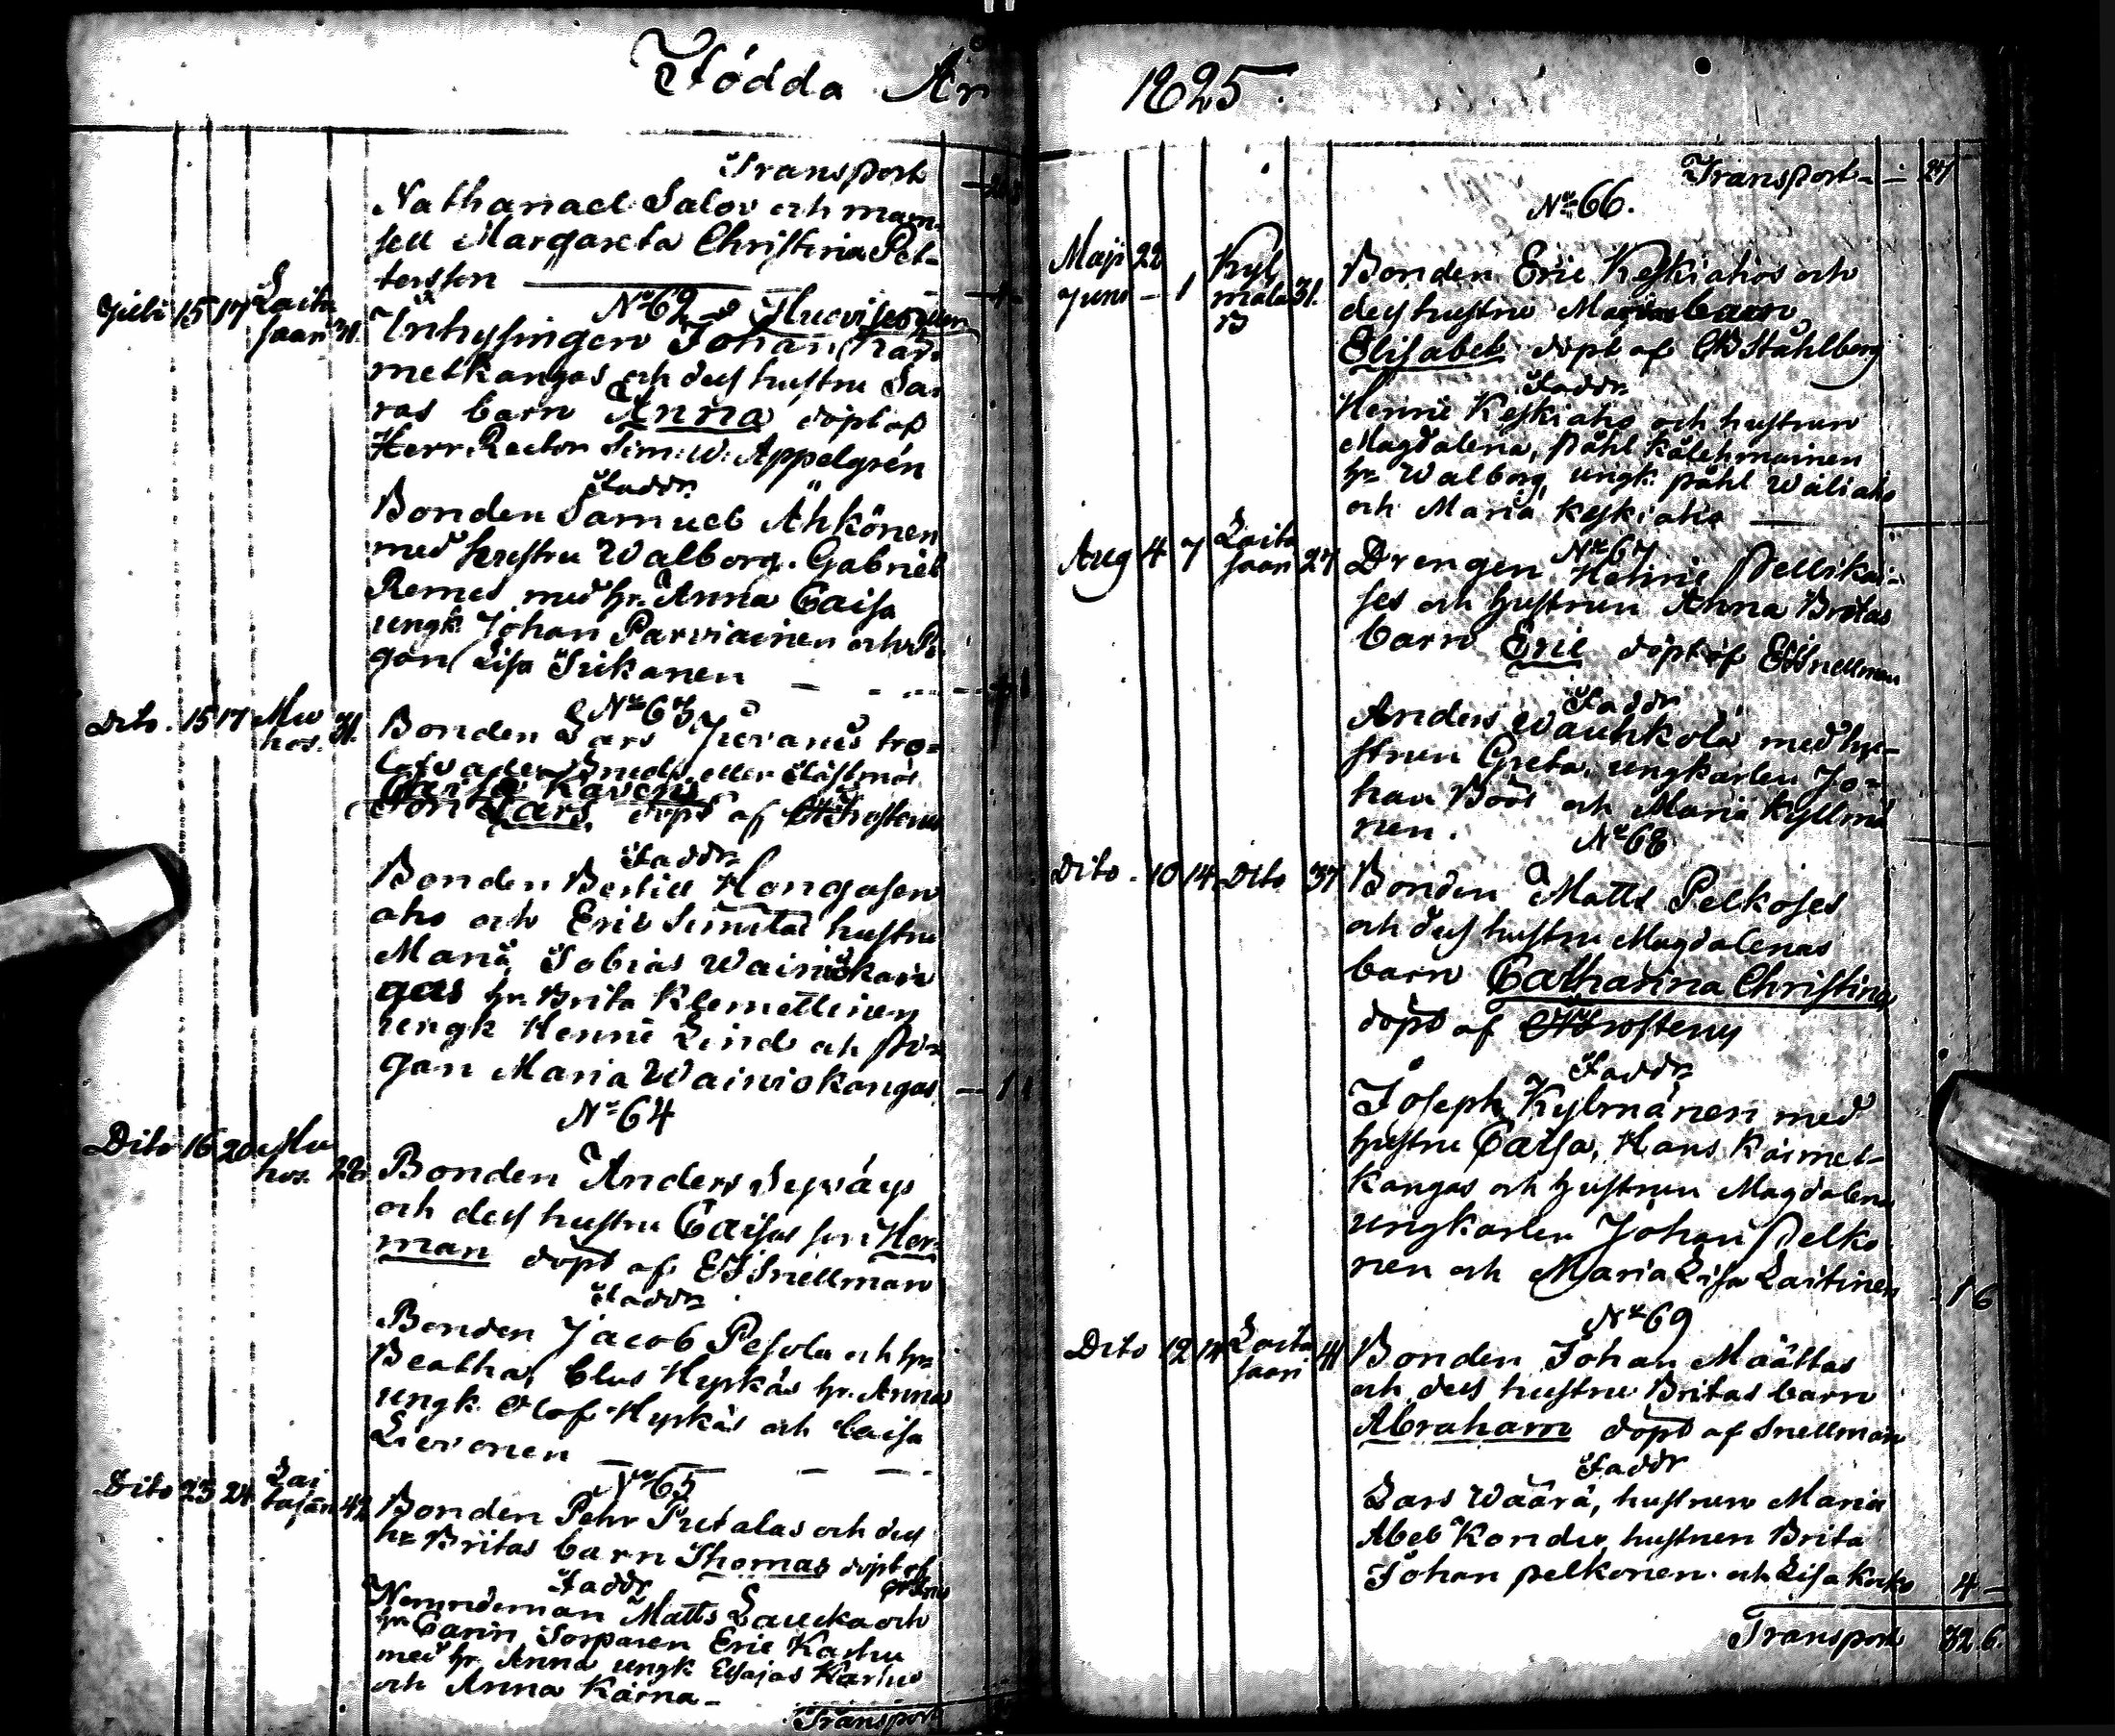 Födda År
Transport
Nathanael Salov och mam-
sell Margareta Christina Pet-
tersson
No 62
Julii 15 17 Laita
saari 31.
Inhysingen Johan
metkangas och dess hustru Sa-
ras barn Anna döpt af
Herr Rector Sim: W: Appelgrén
Faddr
Bonden Samuel Ähkönen
med hustru Walborg. Gabriel
Remes med hr. Anna Caisa
ungk. Johan Parviainen och Pi-
gan Lisa Tukanen
Dito. 15 17 Mu
hos. 31.
No 63
Bonden Lars Juvanis tro-
eller
son Lars döpt af
Faddr
Bonden Bertill Hongasen
aho och Eric hustru
Maria, Tobias Wainiokan
gas hr. Brita Klemettinen
ungk Henric Lind och Pi-
gan Maria Wainiokangas 1
No 64
Dito 16 20 Mu
hos. 28
Bonden Anders Syväys
och dess hustru Caisas son Her-
man döpt af EJ Snellman
Faddr
Bonden Jacob Pesola och hr
Beatha, Clus Hyrkäs hr. Anna
ungk. Olof Hyrkäs och Caisa
Lievonen
No 65
Dito 23 24 Lai
tasaari 42
Bonden Pehr Pietalas och dess
hr Britas barn Thomas döpt af
Faddr
Nemndeman Matts Laucka och
hr Carin Sorparen Eric Karhu
med hr. Anna ungk Esajas Karhu
och Anna Kärnä
Transport
1825.
Transport 27
No 66.
Maji 22
Juni 1 Kyl
mälä 31.
Bonden Eric Keskiahos och
dess hustru Marias barn
Elisabet döpt af Ståhlberg
Faddr
Henric Keskiaho och hustrun
Magdalena, Påhl Kälehmainen
hr Walborg, ungk. Påhl Wäliaho
och Maria Keskiaho
No 67
Aug 4 7 Laita
saari 27
Drengen Henric Pellikai-
ses och hustrun Anna Britas
barn Eric döpt af EJ Snellman
Faddr
Anders Wauhkola med hu-
strun Greta, ungkarlen Jo-
han Böös och Maria Kyllmä
nen.
No 68
Dito. 10 14 Dito 37
Bonden Matts Pelkoses
och dess hustru Magdalenas
barn Catharina Christina
döpt af Frosterus
Faddr
Joseph Kylmänen med
hustru Caisa, Hans Kaimel-
kangas och hustrun Magdalena
ungkarlen Johan Pelko
nen och Maria Lisa Laitinen 1 6
No 69
Dito 12 14 Laita
saari 41
Bonden Johan Määttas
och dess hustru Britas barn
Abraham döpt af Snellman
Faddr
Lars Waärä, hustrun Maria
Abel Kondu, hustrun Brita
Johan Pelkonen och Lisa Koko 4
Transport 32 6.